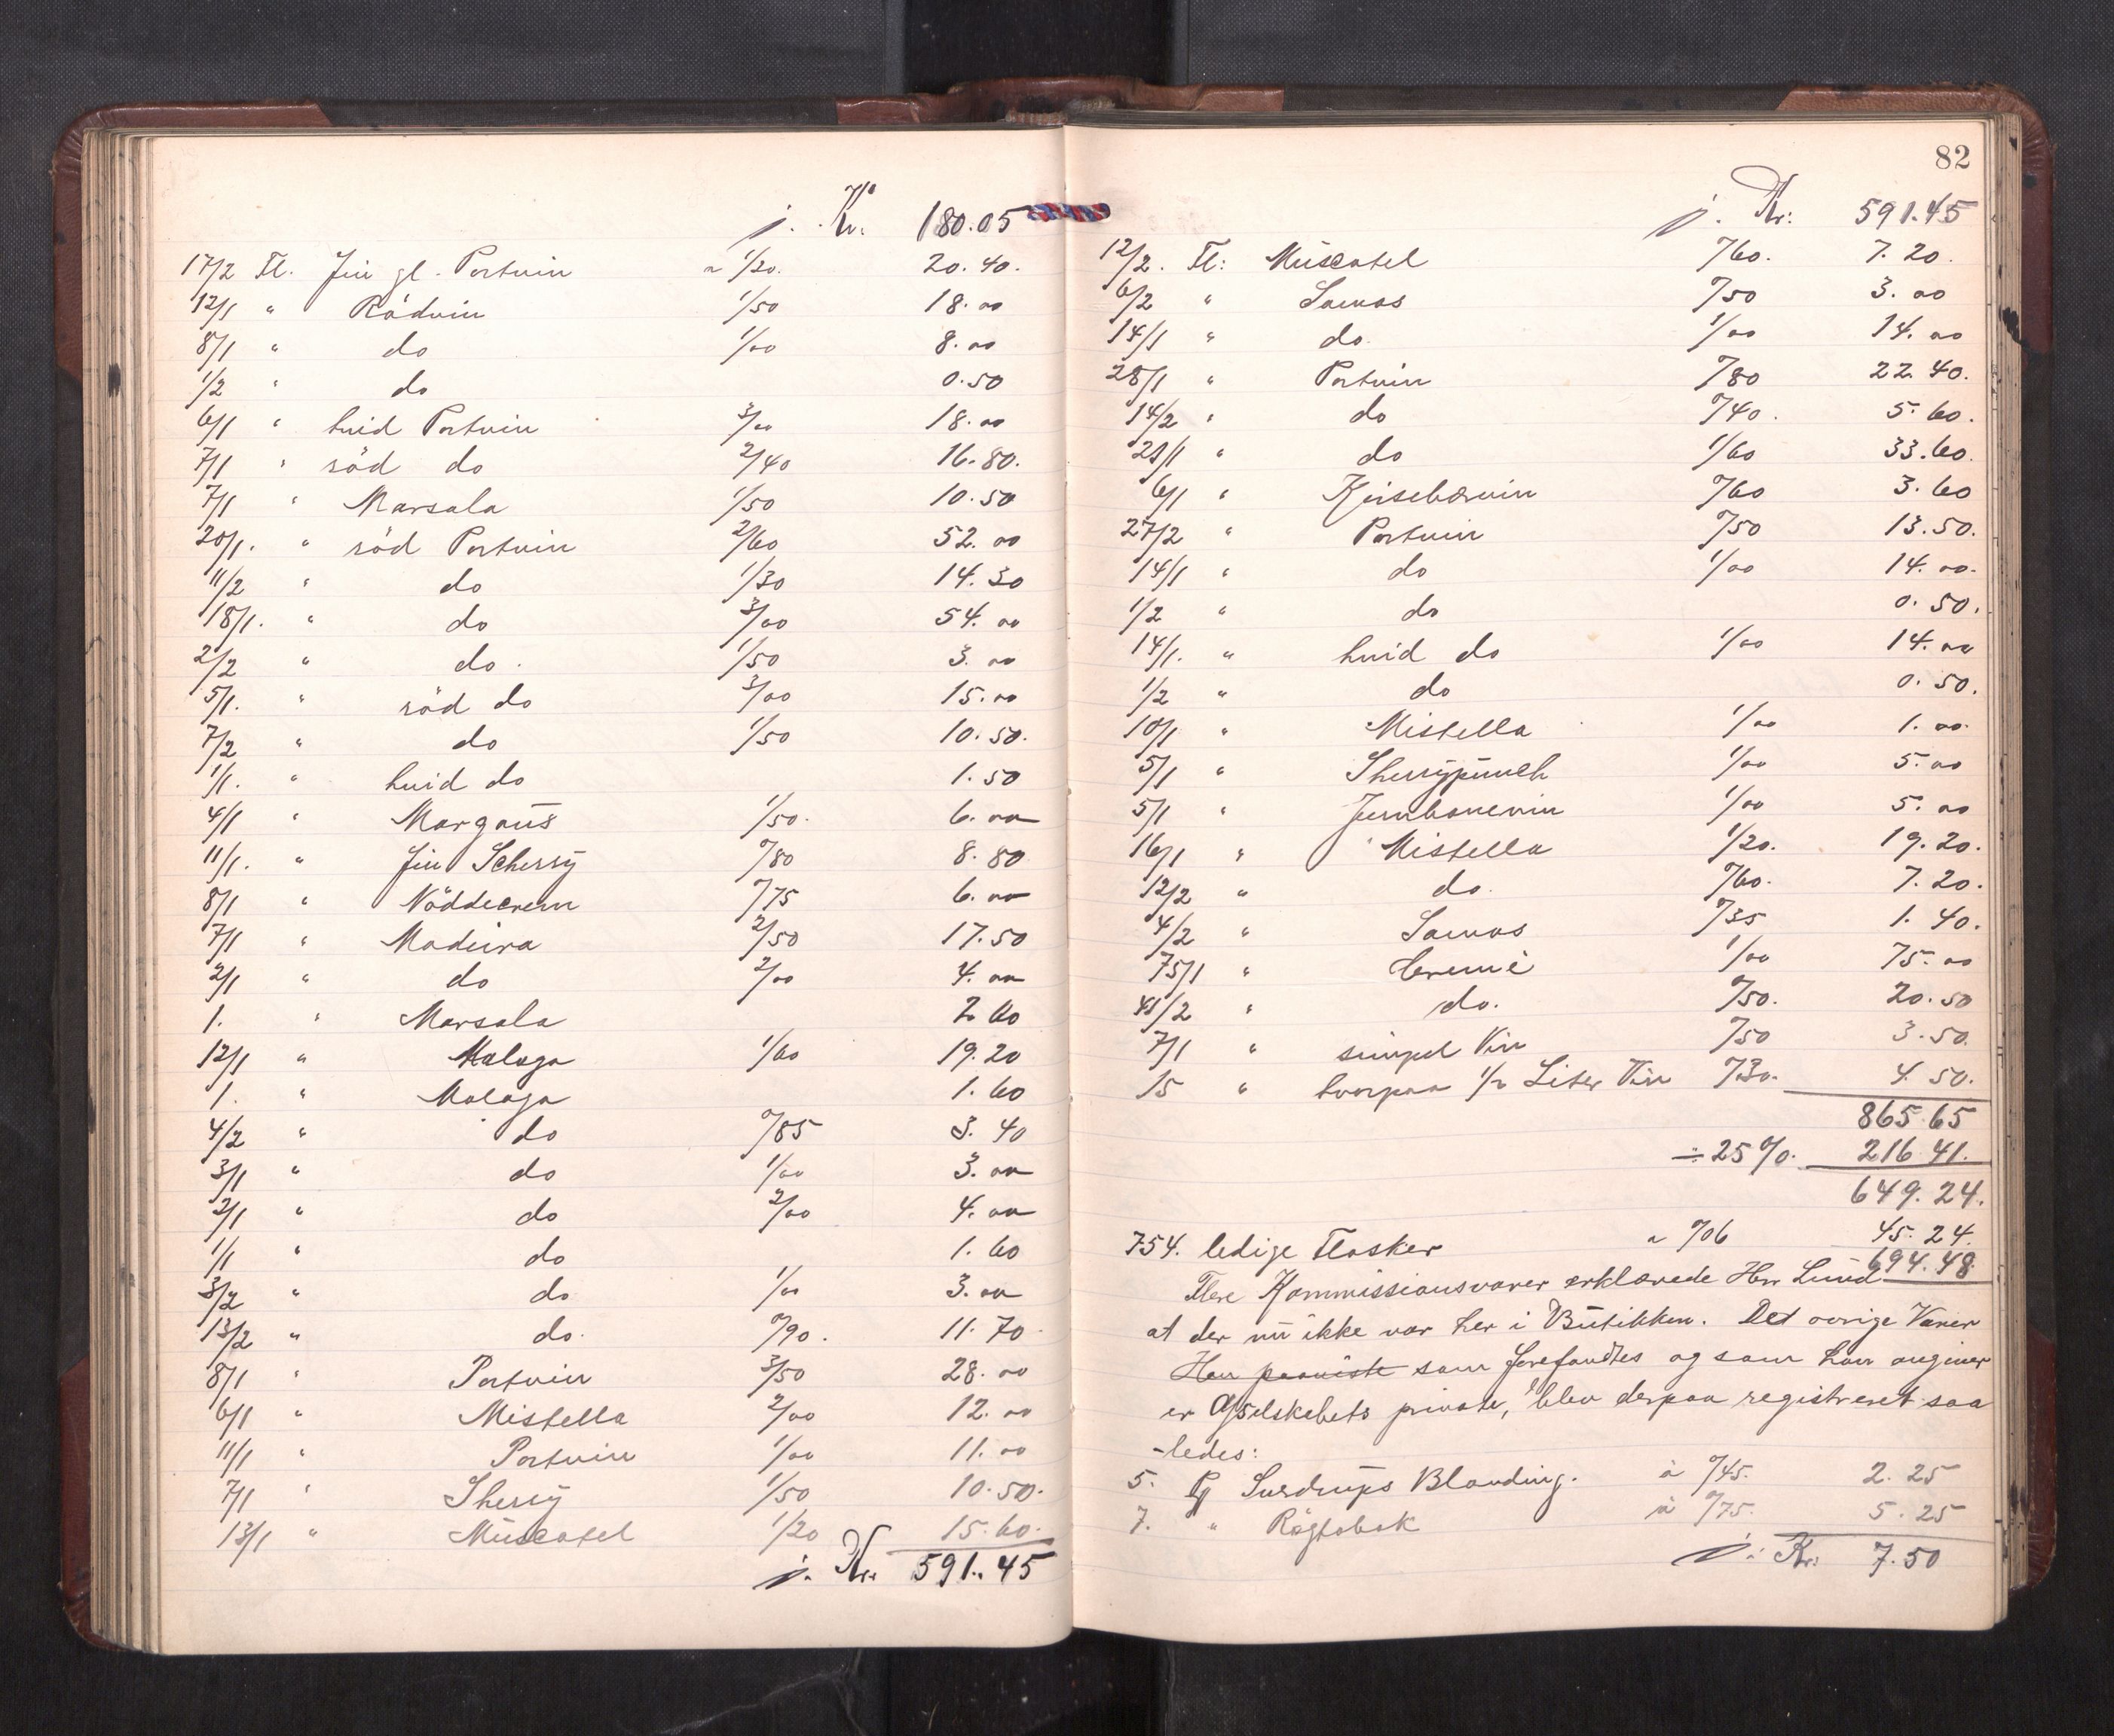 j. Kr. 180.05
17/2 Fl. Fin gl. Portvin a 1/20. 20.40.
12/1 " Rödvin 1/50 18.00
8/1 " do 1/00 8.00
1/2 " do 0.50
6/1 " hvid Portvin 3/00 18.00
7/1 " röd do 2/40 16.80.
7/1 " Marsala 1/50 10.50
20/1. " röd Portvin 2/60 52.00
11/2 " do 1/30 14.30
18/1. " do 3/00 54.00
2/2 " do. 1/50 3.00
5/1. " röd do 3/00 15.00
7/2 " do 1/50 10.50.
1/1. " hvid do 1.50
4/1 " Margaus 1/50. 6.00
11/1. " Fin Scherry 0/80 8.80
8/1 " Nöddecrem 0/75 6.00
7/1 " Madeira 2/50 17.50
2/1 " do 2/00 4.00
1. " Marsala 2.60
12/1 " Malaga 1/60 19.20
1. " Malaga 1.60
4/2 " do 0/85 3.40
3/1 " do 1/00 3.00
2/1 " do 2/00 4.00
1/1 " do 1.60
3/2 " do 1/00 3.00
13/2 " do. 0/90. 11.70.
8/1 " Portvin 3/50 28.00
6/1 " Mistella 2/00 12.00
11/1 " Portvin 1/00 11.00
7/1 " Sherry 1/50 10.50.
13/1 " Muscatel 1/20 15.60.
j. Kr. 591.45
82
j. Kr: 591.45
12/2. Fl: Muscatel 0/60. 7.20.
6/2 " Samos 0/50 3.00
14/1 " do. 1/00 14.00
28/1 " Portvin 0/80 22.40.
14/2 " do 0/40. 5.60.
21/1 " do 1/60 33.60.
6/1 " Kirsebærvin 0/60 3.60
27/2 " Portvin 0/50 13.50.
14/1 " do 1/00 14.00.
1/2 " do 0.50.
14/1. " hvid do 1/00 14.00
1/2 " do 0.50.
10/1 " Mistella 1/00 1.00.
5/1 " Sherrypunch 1/00 5.00
5/1 " 1/00 5.00
16/1 " Mistella 1/20. 19.20.
12/2 " do. 0/60. 7.20.
4/2 " Samos 0/35 1.40.
75/1 " Cremé 1/00 75.00
41/2 " do. 0/50. 20.50
7/1 " simpel Vin 0/50 3.50.
15 " hvorpaa 1/2 Liter Vin 0/30. 4.50.
865.65
÷ 25%. 216.41.
649.24.
754. ledige Flasker a 0/06 45.24.
694.48
Flere Kommissionsvarer erklærede Herr Lund
at der nu ikke var her i Butikken. Det øvrige Varer
Han paaviste som forefandtes og som han angiver
er Afselskebets private, blev derpaa registreret saa
-ledes:
5. Pg Blanding. à 0/45. 2.25
7. " Rögtobak à 0/75. 5.25
j: Kr: 7.50